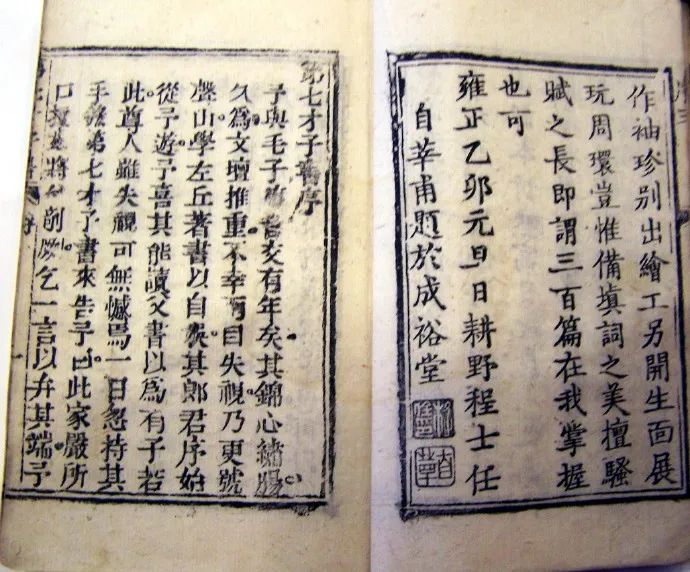 作袖珍別出繪工另開生面展
玩周環豈惟備填詞之美擅騷
賦之長即謂三百篇在我掌握
也可
雍正乙卯元旦日耕野程士任
自莘甫題於成裕堂
第七才子書序
予與毛子交有年矣其錦心繡腸
久為文壇推重不幸兩目失視乃更號
聲山學左丘著書以自娛其郎君序始
從予遊予喜其能讀父書以為有子若
此尊人雖失視可無憾焉一日忽持其
手第七才子書來告予曰此家嚴所
口將付剞乞一言以弁其端予